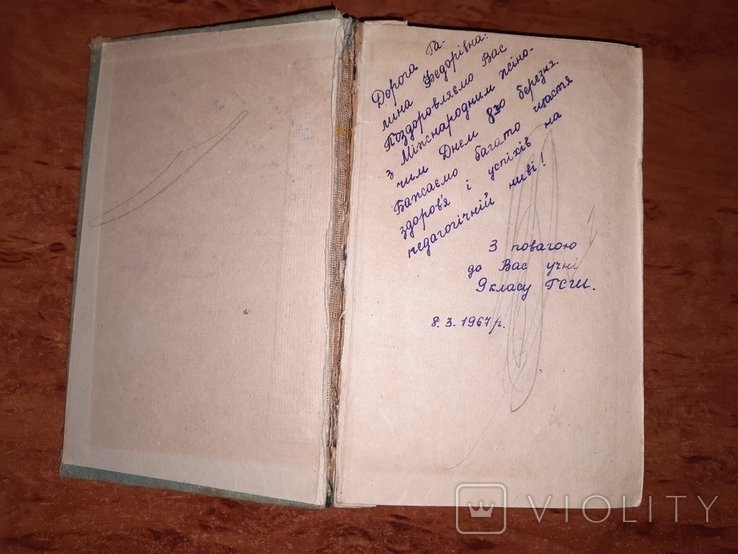 Дорога Га-
лина Федорівна!
Поздоровляємо Вас
з Міжнародним жіно-
чим Днем 8го березня.
Бажаємо багато щастя
здоров'я і успіхів на
педагогічній ниві!
З повагою
до Вас учні
9 класу ГСШ.
8. 3. 1967 р.
VIOLITY